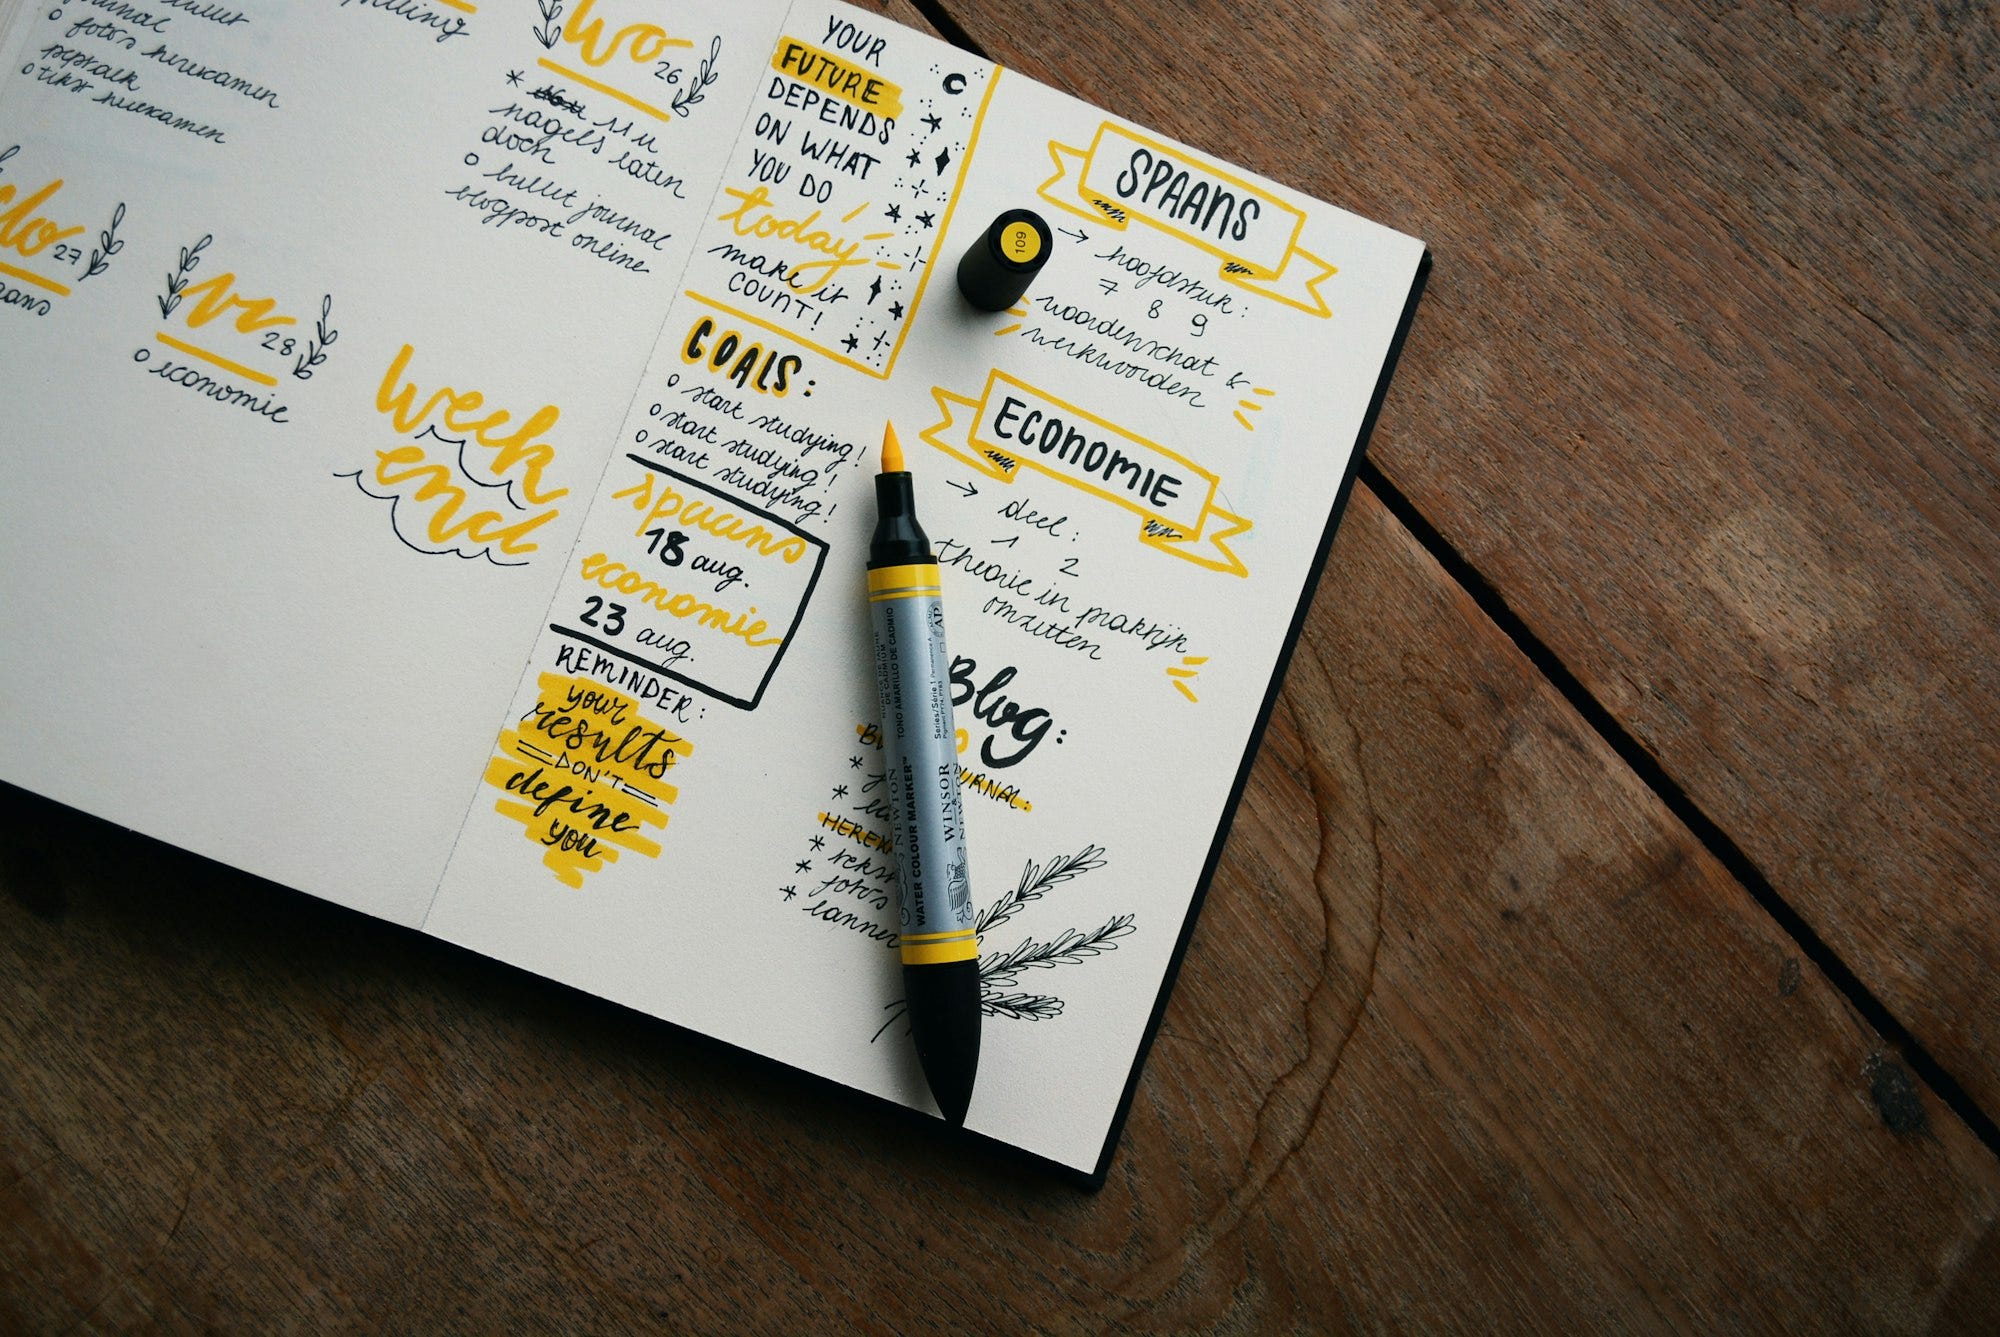 bullet
o foto's
peptalk
o tekst
wo 26
* 11 u
nagels laten
doen
o bullet journal
blogpost online
do 27
vr 28
o economie
week
end
YOUR
FUTURE
DEPENDS
ON WHAT
YOU DO
today
make it
COUNT!
GOALS:
o start studying!
o start studying!
o start studying!
spaans
18 aug.
economie
23 aug.
REMINDER:
your
results
DON'T
define
you
SPAANS
→ hoofdstuk:
7 8 9
woordenschat &
werkwoorden
ECONOMIE
→ deel:
1 2
theorie in praktijk
omzetten
Blog:
*
*
* tekst
* foto's
*
109
WATER COLOUR MARKER™
WINSOR
& NEWTON
Series/Série 1
TONO AMARILLO DE CADMIO